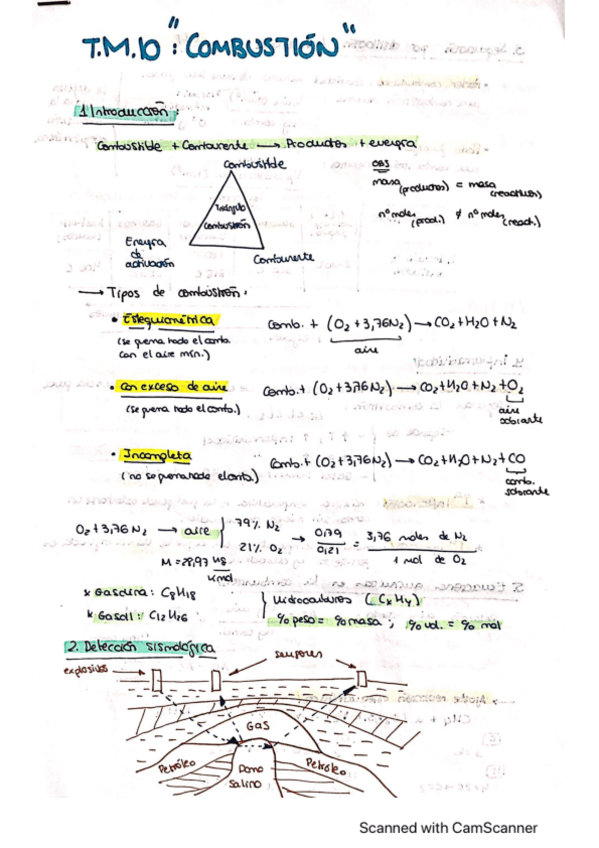 T.M.10 : "COMBUSTIÓN"
1 Introducción:
Combustible + Comburente → Productos + energía
Combustible
Triángulo
Combustión
Energía
de
activación
Comburente
OBS
masa (productos) = masa (reactivos)
nº moles (prod.) ≠ nº moles (react.)
→ Tipos de combustión:
• Estequiométrica
(se quema todo el comb.
con el aire mín.)
Comb. + (O2 + 3,76N2) → CO2 + H2O + N2
aire
• Con exceso de aire
(se quema todo el comb.)
Comb. + (O2 + 3,76N2) → CO2 + H2O + N2 + O2
aire
sobrante
• Incompleta
(no se quema todo el comb.)
Comb. + (O2 + 3,76N2) → CO2 + H2O + N2 + CO
comb.
sobrante
O2 + 3,76 N2 → aire { 79% N2 21% O2 → 0,79/0,21 = 3,76 moles de N2 / 1 mol de O2
M = 28,97 kg/kmol
* Gasolina: C8H18
* Gasoil: C12H26
} Hidrocarburos (CxHy)
% peso = % masa ; % vol. = % mol
2. Detección sismológica
explosivos
sensores
Gas
Petróleo
Domo
Salino
Petróleo
Scanned with CamScanner